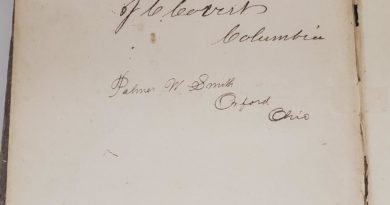 J. C. Covert
Columbia
Palmer W Smith
Oxford
Ohio